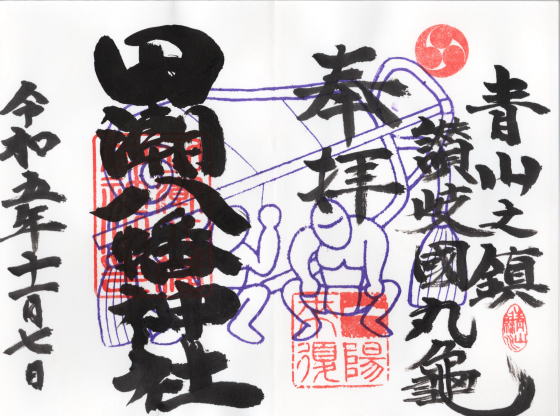 青山之鎮
讃岐國丸龜
奉拝
田潮八幡神社
令和五年十一月七日
一陽
来復